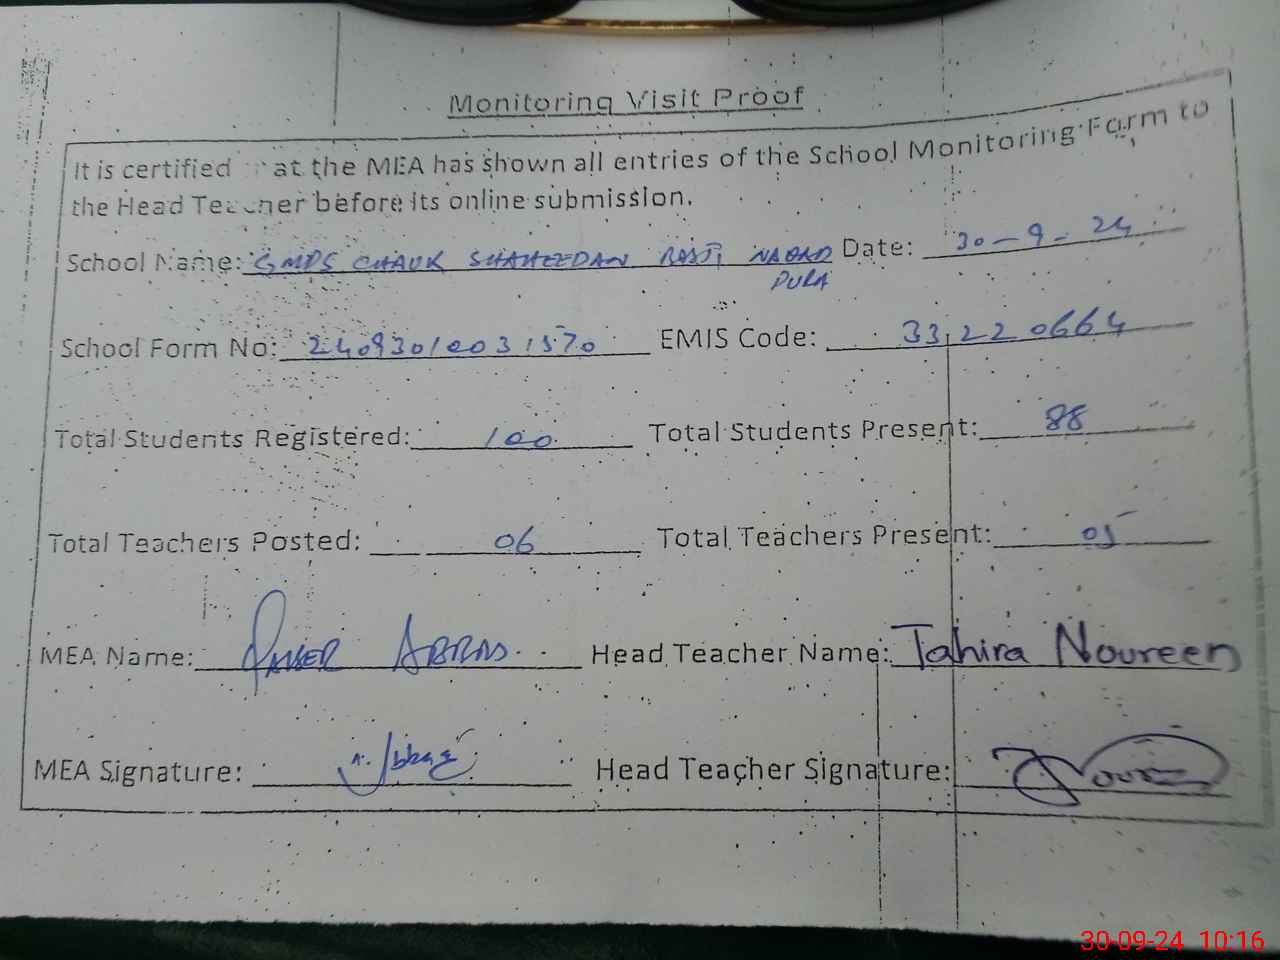 Monitoring Visit Proof
It is certified at the MEA has shown all entries of the School Monitoring Form to
the Head Teacher before its online submission.
School Name: GMPS CHAUK SHAHEEDAN BASTI Date: 30-9-24
PURA
School Form No: 24093010031570 EMIS Code: 33220664
Total Students Registered: 100 Total Students Present: 88
Total Teachers Posted: 06 Total Teachers Present: 05
MEA Name: ABBAS Head Teacher Name: Tahira Noureen
MEA Signature: Head Teacher Signature:
30-09-24 10:16